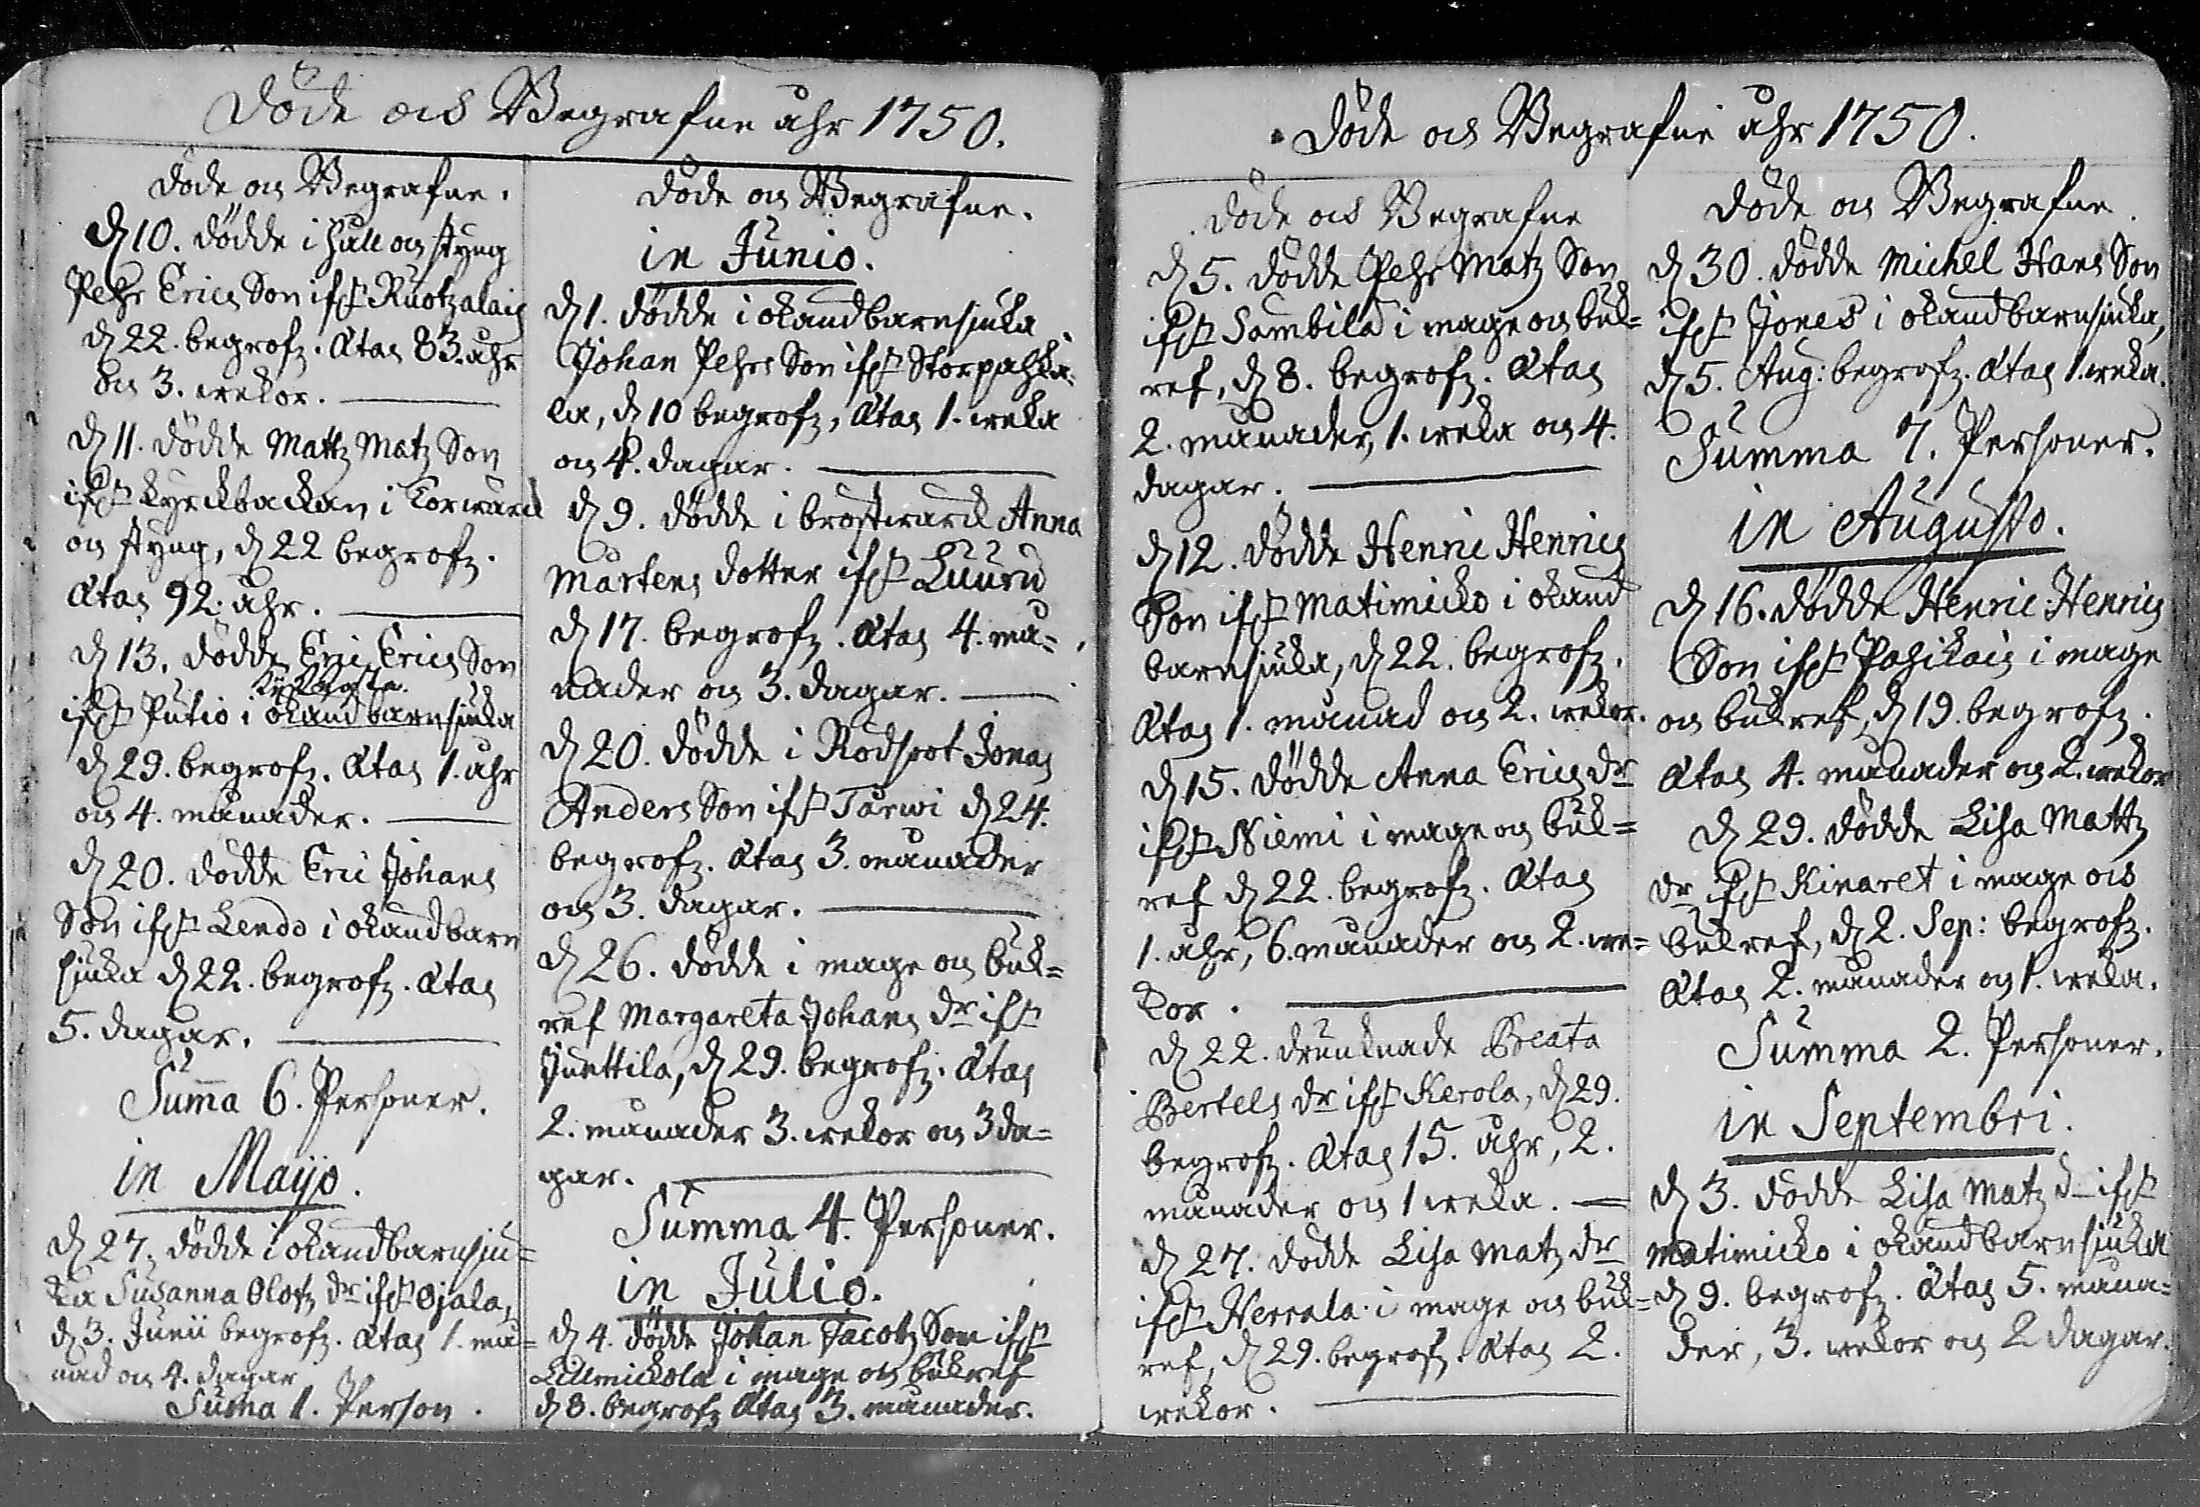 Döde och Begrafne åhr 1750.
Döde och Begrafne.
D. 10. dödde i håll och styng
Pehr Erics Son ifr. Ruotzalais
D. 22. begrofz. Ætas 83. åhr
och 3. wekor.
D. 11. dödde Mattz Matz Son
ifr. Kyrckbackan i Torrwärck
och styng, D. 22 begrofz.
Ætas 92. åhr.
D. 13. dödde Eric Erics Son
kykhosta.
ifr. Putio i okand barnsiuka
D. 29. begrofz. Ætas 1. åhr
och 4. månader.
D. 20. dödde Eric Johans
Son ifr. Lendo i okandbarn
siuka D. 22. begrofz. Ætas
5. dagar.
Suma 6. Personer.
in Mayo.
D. 27. dödde i okandbarnsiu=
ka Susanna Olofz dr ifr. Ojala,
D. 3. Junii begrofz. Ætas 1. må=
nad och 4. dagar
Suma 1. Person.
Döde och Begrafne.
in Junio.
D. 1. dödde i okandbarnsiuka
Johan Pehrs Son ifr. Storpahka=
la, D. 10 begrofz, Ætas 1. weka
och 4. dagar.
D. 9. dödde i bröstwärck Anna
Mårtens dotter ifr. Luuru
D. 17. begrofz. Ætas 4. må=
nader och 3. dagar.
D. 20. dödde i Rödsoot Jonas
Anders Son ifr. Tarwi D. 24.
begrofz. Ætas 3. månader
och 3. dagar.
D. 26. dödde i mage och buk=
ref Margareta Johans dr ifr.
Juettila, D. 29. begrofz. Ætas
2. månader 3. wekor och 3 da=
gar.
Summa 4. Personer.
in Julio.
D. 4. dödde Johan Jacobz Son ifr.
Lillmickola i mage och bukref
D. 8. begrofz Ætas 3. månader.
Döde och Begrafne åhr 1750.
Döde och Begrafne
D. 5. dödde Pehr Matz Son
ifr. Sämbilä i mage och buk=
ref, D. 8. begrofz. Ætas
2. månader, 1. weka och 4.
dagar.
D. 12. dödde Henric Henrics
Son ifr. Matimicko i okand
barnsiuka, D. 22. begrofz.
Ætas 1. månad och 2. wekor.
D. 15. dödde Anna Erics dr
ifr. Niemi i mage och buk=
ref D. 22. begrofz. Ætas
1. åhr, 6. månader och 2. we=
kor.
D. 22. drunknade Beata
Bertels dr ifr. Kerola, D. 29.
begrofz. Ætas 15. åhr, 2.
månader och 1 weka.
D. 27. dödde Lisa Matz dr
ifr. Herrala i mage och buk=
ref, D. 29. begrofz. Ætas 2.
wekor.
Döde och Begrafne.
D. 30. dödde Michel Hans Son
ifr. Jones i okandbarnsiuka,
D. 5. Aug: begrofz. Ætas 1. weka.
Summa 7. Personer.
in Augusto.
D. 16. dödde Henric Henrics
Son ifr. Pasikais i mage
och bukref, D. 19. begrofz.
Ætas 4. månader och 2. wekor
D. 29. dödde Lisa Mattz
dr ifr. Kinaret i mage och
bukref, D. 2. Sep: begrofz.
Ætas 2. månader och 1. weka.
Summa 2. Personer.
in Septembri.
D. 3. dödde Lisa Matz d- ifr.
Matimicko i okandbarnsiuka
D. 9. begrofz. Ætas 5. måna=
der, 3. wekor och 2 dagar.